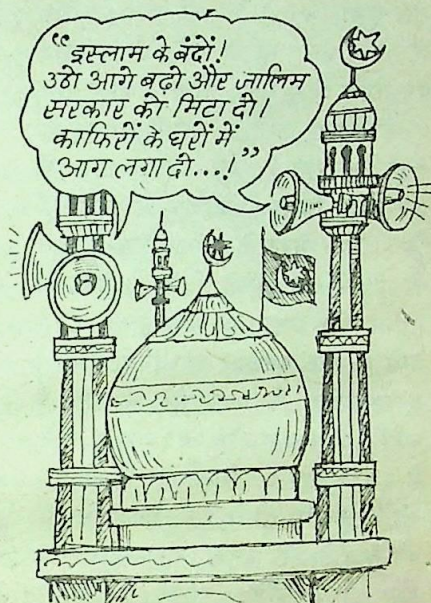 “इस्लाम के बंदों!
उठो आगे बढ़ो और जालिम
सरकार को मिटा दो।
काफिरों के घरों में
आग लगा दो...!”